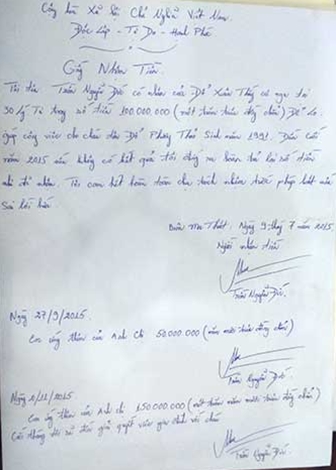 Cộng hòa Xã Hội Chủ Nghĩa Việt Nam.
Độc Lập - Tự Do - Hạnh Phúc
Giấy Nhận Tiền.
Tôi tên Trần Nguyễn Đức có nhận của Đỗ Xuân Thủy
30 Lý Tự Trọng số tiền 100.000.000 (một trăm triệu đồng chẵn) Để Lo
giúp công việc cho cháu Đỗ Thủy sinh năm 1991. Đến cuối
năm 2015 nếu không có kết quả tôi hoàn trả lại số tiền
đã nhận. Tôi cam kết hoàn toàn chịu trách nhiệm trước pháp luật nếu
Sai lời hứa
Buôn Ma Thuột, Ngày 9 tháng 7 năm 2015.
Người nhận tiền
Trần Nguyễn Đức.
Ngày 27/9/2015.
Em ứng thêm của Anh Chi 50.000.000 (năm mươi triệu đồng chẵn)
Trần Nguyễn Đức.
Ngày 2/11/2015
Em ứng thêm của Anh chi 150.000.000 (một trăm năm mươi triệu đồng chẵn)
giải quyết việc cho cháu
Trần Nguyễn Đức